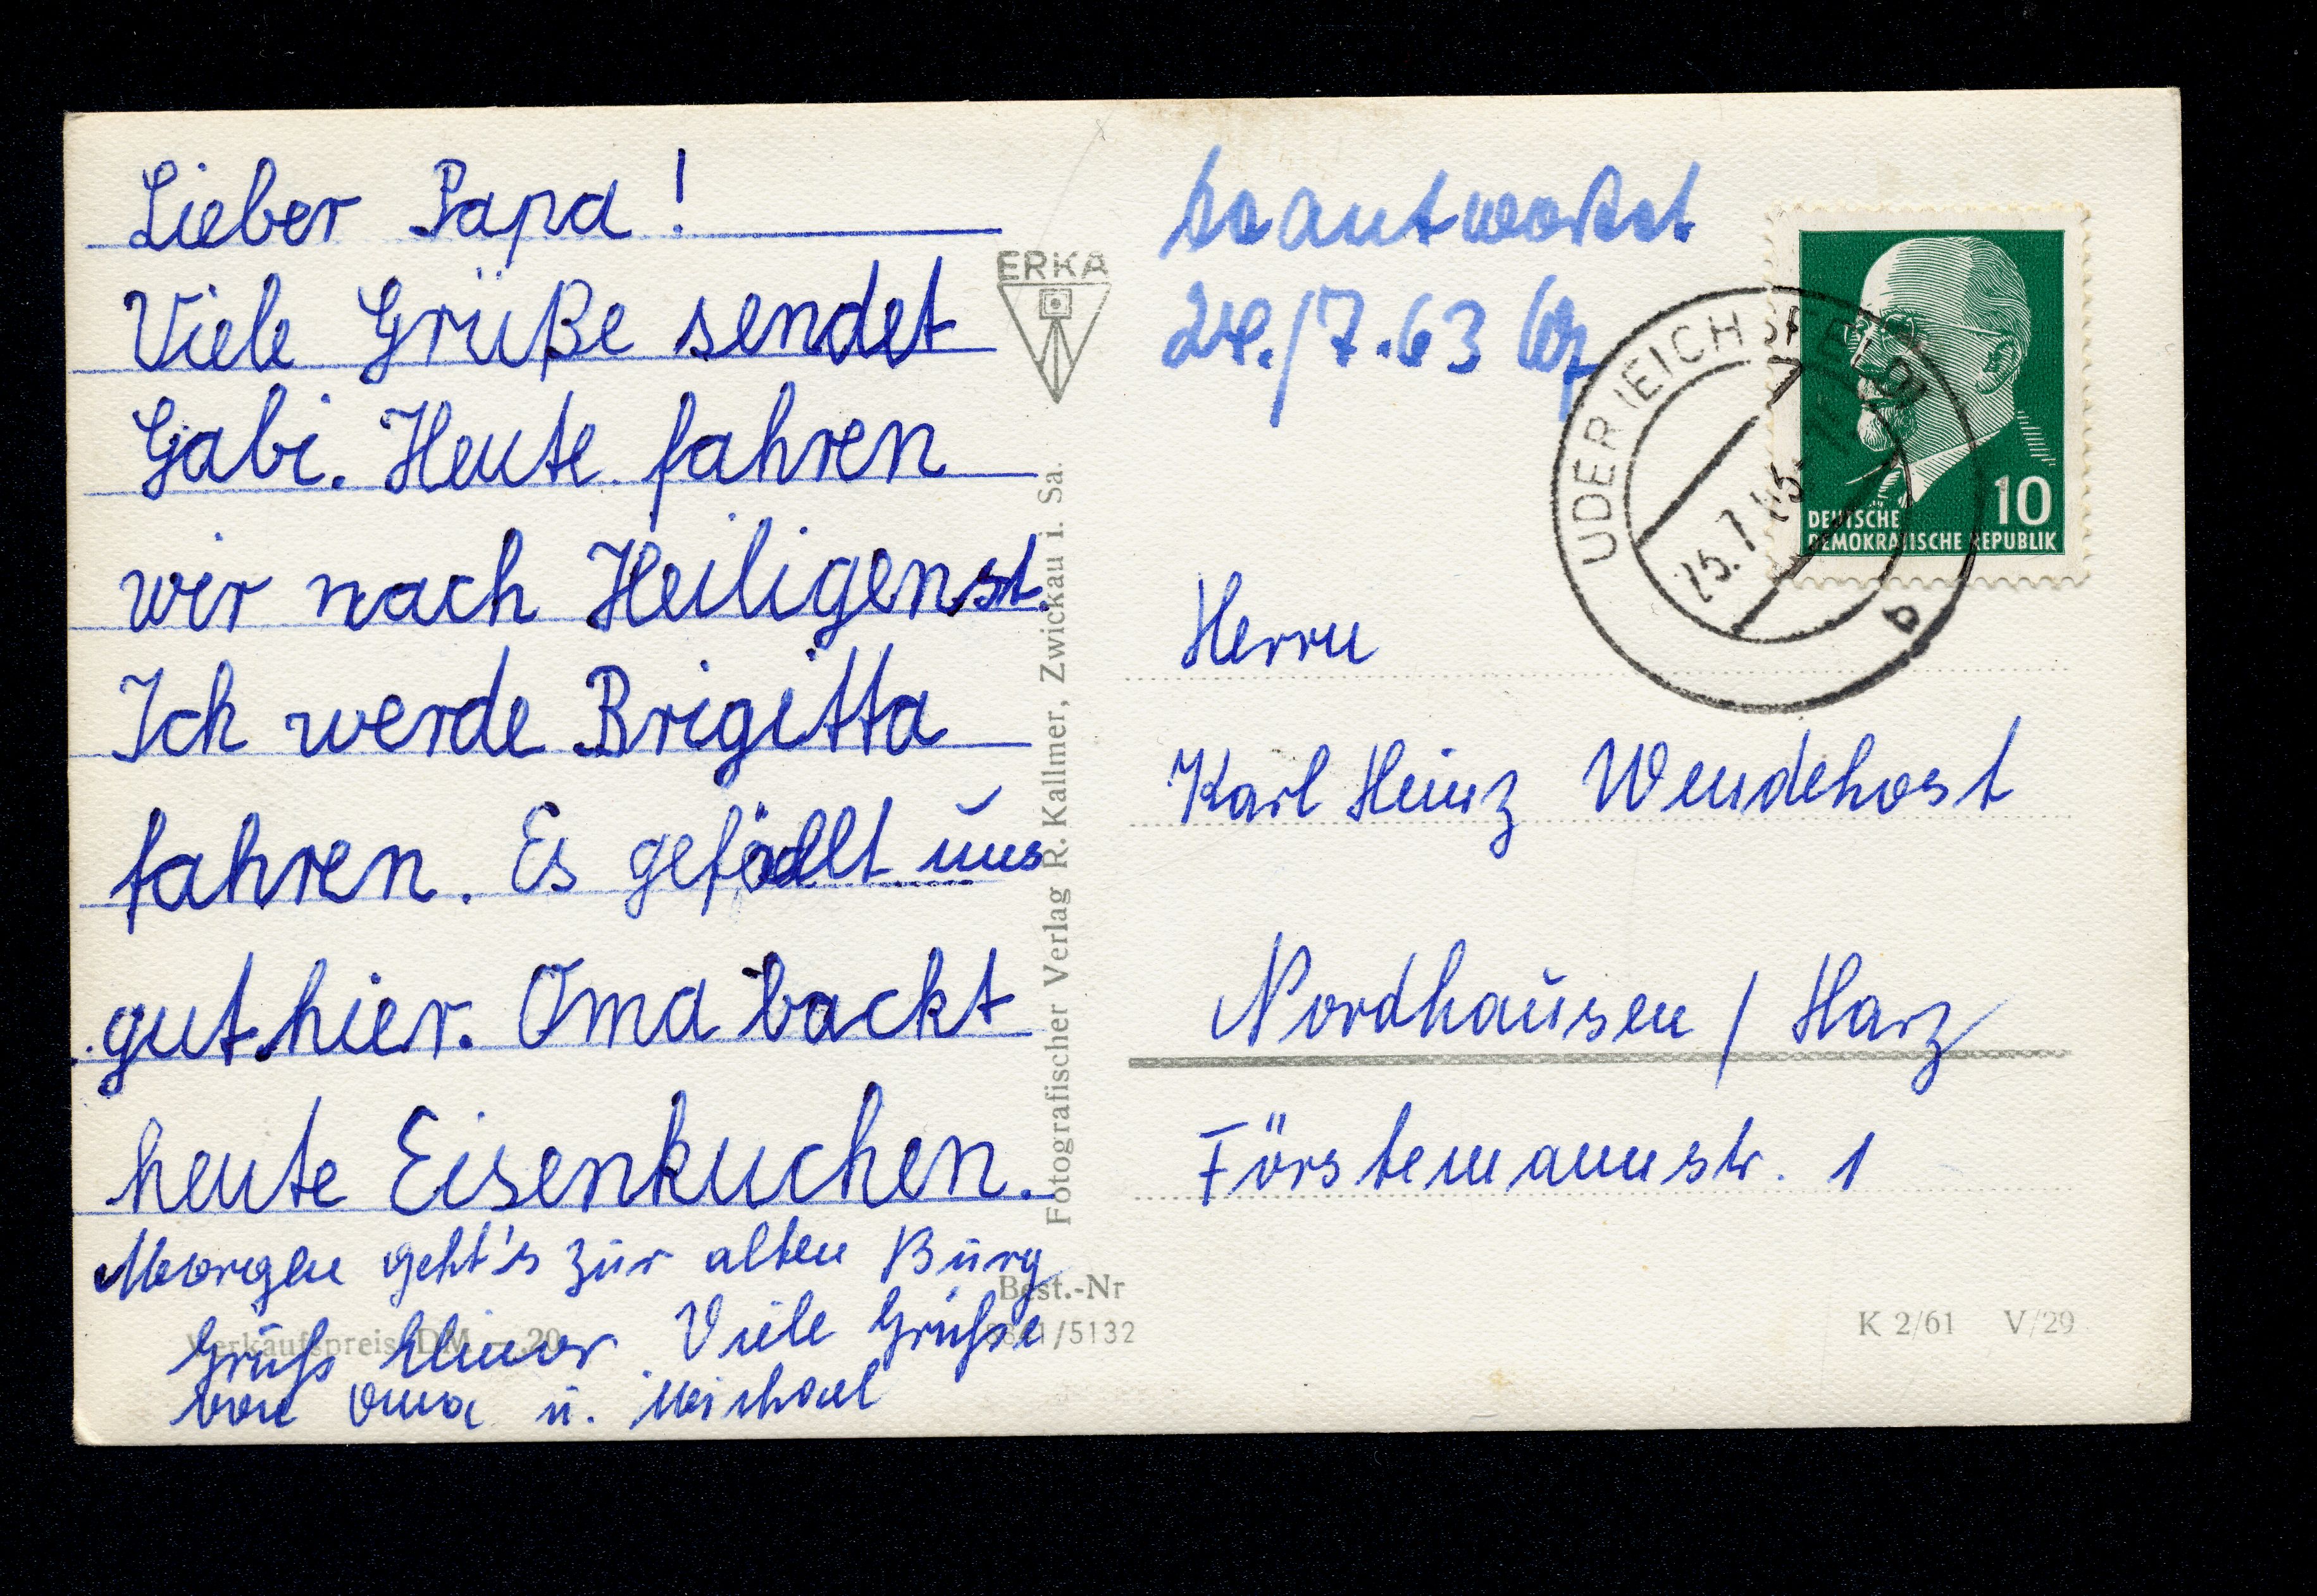 Lieber Papa!
Viele Grüße sendet
Gabi. Heute fahren
wir nach Heiligenst.
Ich werde Brigitta
fahren. Es gefällt uns
gut hier. Oma backt
heute Eisenkuchen.
Morgen geht's zur alten Burg
Gruß Elinor Viele Grüße
von Oma u. Michael
Verkaufspreis DM -.20
ERKA
Fotografischer Verlag R. Kallmer, Zwickau i. Sa.
Best.-Nr
/5132
beantwortet
/7.63
UDER (EICHSFELD)
25.7.
b
DEUTSCHE
DEMOKRATISCHE REPUBLIK
10
Herrn
Karl Heinz Wendehost
Nordhausen / Harz
Förstemannstr. 1
K 2/61 V/29